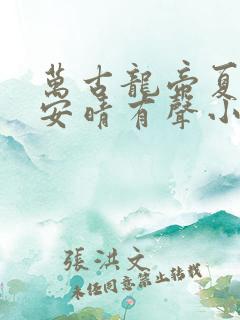 萬古龍帝夏
安晴有聲小
張洪文
未經同意禁止轉載